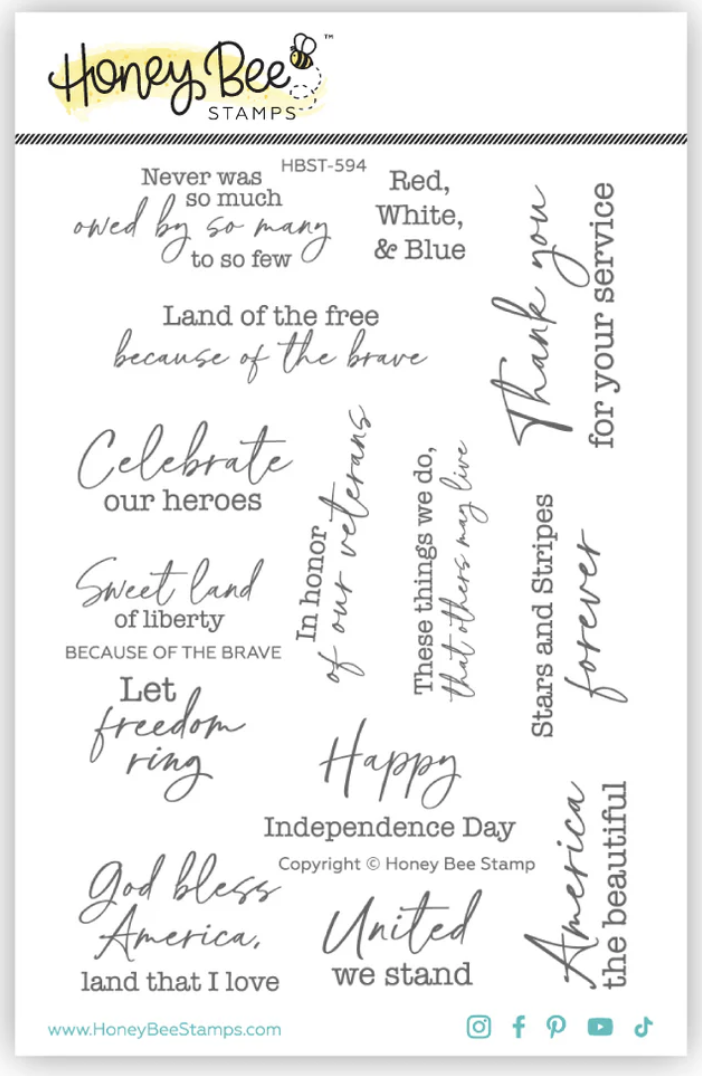 Honey Bee™
STAMPS
HBST-594
Never was
so much
owed by so many
to so few
Red,
White,
& Blue
Thank you
for your service
Land of the free
because of the brave
Celebrate
our heroes
In honor
of our veterans
These things we do,
that others may live
Stars and Stripes
forever
Sweet land
of liberty
BECAUSE OF THE BRAVE
Let
freedom
ring
Happy
Independence Day
Copyright © Honey Bee Stamp
America
the beautiful
God bless
America,
land that I love
United
we stand
www.HoneyBeeStamps.com